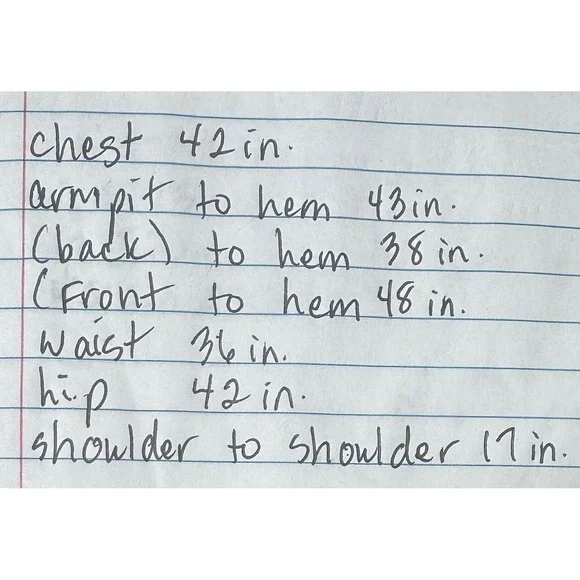 chest 42 in.
armpit to hem 43 in.
(back) to hem 38 in.
(Front to hem 48 in.
waist 36 in.
hip 42 in.
shoulder to shoulder 17 in.